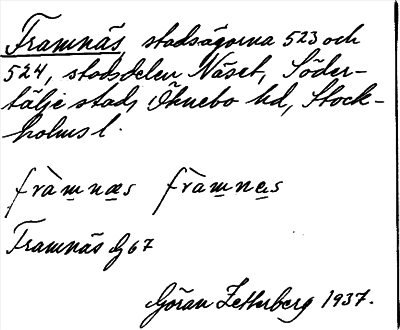 Framnäs, stadsägorna 523 och
524, stadsdelen Näset, Söder-
tälje stad, Öknebo hd, Stock-
holms l.
fràm̲næ̲s fràm̲ne̲s
Framnäs G 67
Göran Zetterberg 1937.